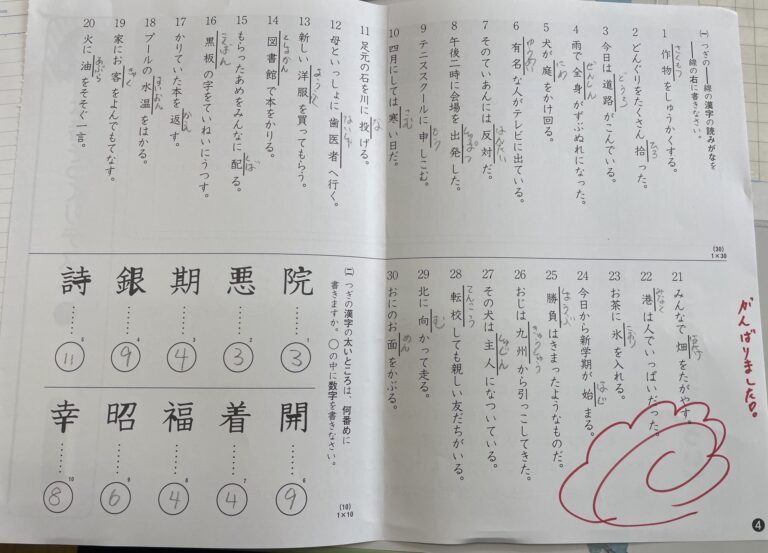 ㈠ つぎの――線の漢字の読みがなを
――線の右に書きなさい。
(30)
1×30
1 作物をしゅうかくする。
さくもつ
2 どんぐりをたくさん拾った。
ひろ
3 今日は道路がこんでいる。
どうろ
4 雨で全身がずぶぬれになった。
ぜんしん
5 犬が庭をかけ回る。
にわ
6 有名な人がテレビに出ている。
ゆうめい
7 そのていあんには反対だ。
はんたい
8 午後二時に会場を出発した。
しゅっぱつ
9 テニススクールに申しこむ。
もう
10 四月にしては寒い日だ。
さむ
11 足元の石を川に投げる。
な
12 母といっしょに歯医者へ行く。
13 新しい洋服を買ってもらう。
ようふく
14 図書館で本をかりる。
としょかん
15 もらったあめをみんなに配る。
くば
16 黒板の字をていねいにうつす。
こくばん
17 かりていた本を返す。
かえ
18 プールの水温をはかる。
すいおん
19 家にお客をよんでもてなす。
きゃく
20 火に油をそそぐ一言。
あぶら
21 みんなで畑をたがやす。
はたけ
22 港は人でいっぱいだった。
みなと
23 お茶に氷を入れる。
こおり
24 今日から新学期が始まる。
はじ
25 勝負はきまったようなものだ。
しょうぶ
26 おじは九州から引っこしてきた。
きゅうしゅう
27 その犬は主人になついている。
しゅじん
28 転校しても親しい友だちがいる。
てんこう
29 北に向かって走る。
む
30 おにのお面をかぶる。
めん
がんばりました。
㈡ つぎの漢字の太いところは、何番めに
書きますか。○の中に数字を書きなさい。
(10)
1×10
院……1 3
悪……2 3
期……3 4
銀……4 9
詩……5 11
開……6 9
着……7 4
福……8 4
昭……9 6
幸……10 8
4